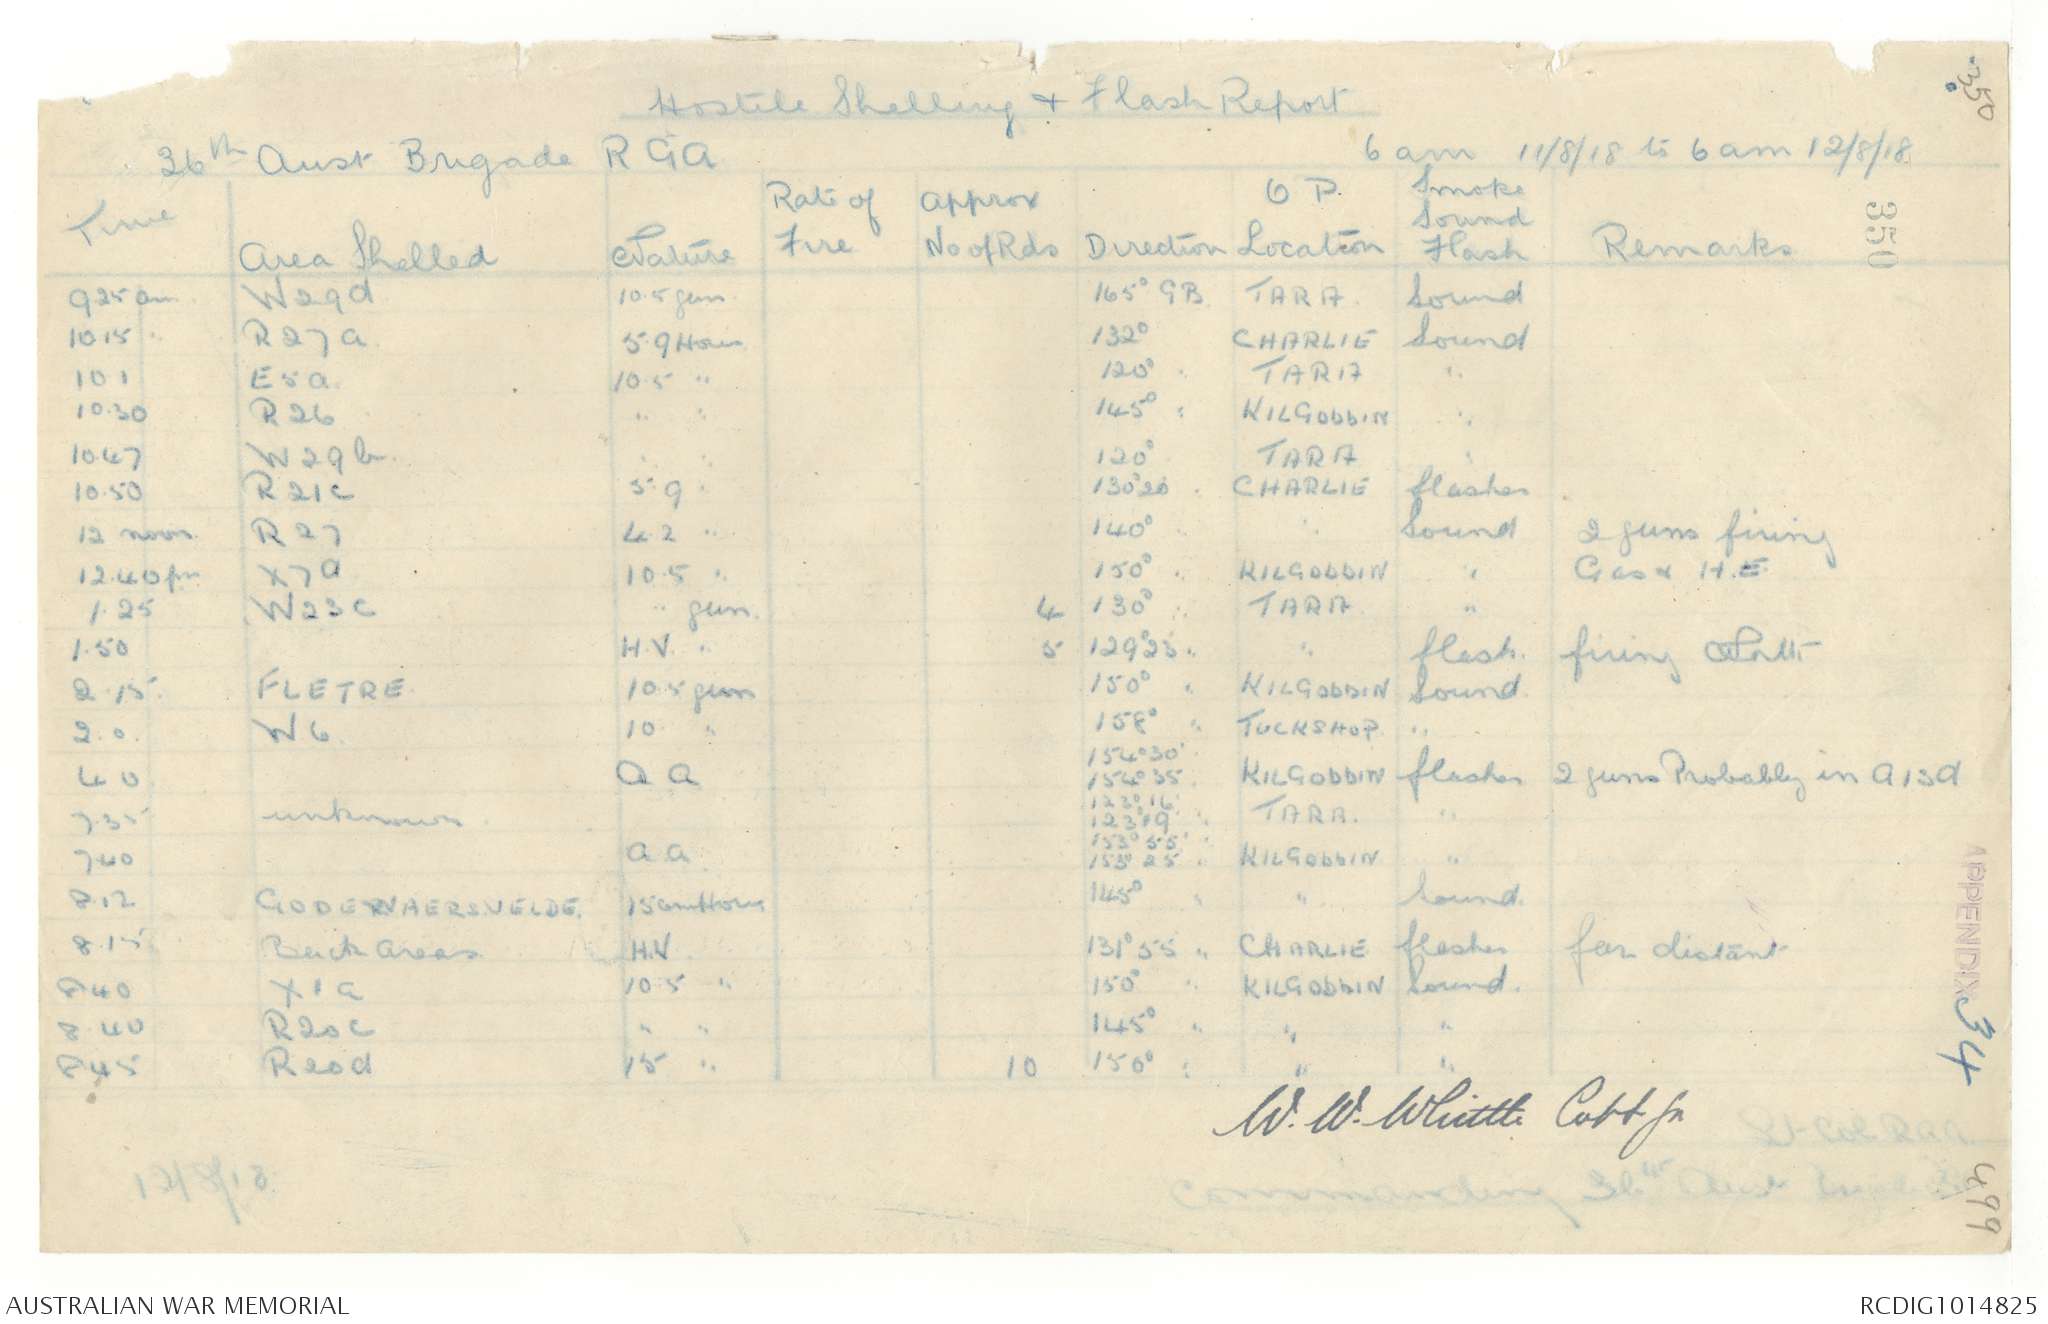 350
Hostile Shelling & Flash Report
36th Aust Brigade R G A 6 am 11/8/18 to 6 am 12/8/18
350
Time Area Shelled Nature Rate of Fire Approx No of Rds Direction O P. Location Smoke Sound Flash Remarks
9 25 am W 29 d 10.5 gun 165° GB TARA Sound
10 15 " R 27 a 5.9 How 132° CHARLIE Sound
10 1 E 5 a 10.5 " 120° " TARA "
10.30 R 26 " " 145° " KILGOBBIN "
10.47 W 29 b " " 120° TARA "
10.50 R 21 c 5.9 " 130°20 " CHARLIE flashes
12 noon R 27 4.2 " 140° " " Sound 2 guns firing
12.40 pm X 7 a 10.5 " 150° " KILGOBBIN " Gas & H.E
1.25 W 23 c " gun 4 130° " TARA "
1.50 H.V. " 5 129°25 " " flash. firing
2.15. FLETRE 10.5 gun 150° " KILGOBBIN Sound
2.0. W 6. 10 " 158° " TUCKSHOP "
4 0 A A 154°30' 154°35 KILGOBBIN flashes 2 guns Probably in A 13 d
7.35 unknown 123°16' 123°19 " TARA. "
7 40 A A 153°55' 153°25 " KILGOBBIN "
8.12 GODEWAERSVELDE. 15 cm How 145° " " Sound.
8.15 Back areas H.V. 131°55 " CHARLIE flashes far distant
8 40 X 1 a 10.5 " 150° " KILGOBBIN Sound.
8.40 R 20 c " " 145° " " "
8 45 R 20 d 15 " 10 150° " " "
APPENDIX 34
W. W. Whittle Capt for
Lt Col R A A.
12/8/18 Commanding 36th Aust
499
AUSTRALIAN WAR MEMORIAL RCDIG1014825